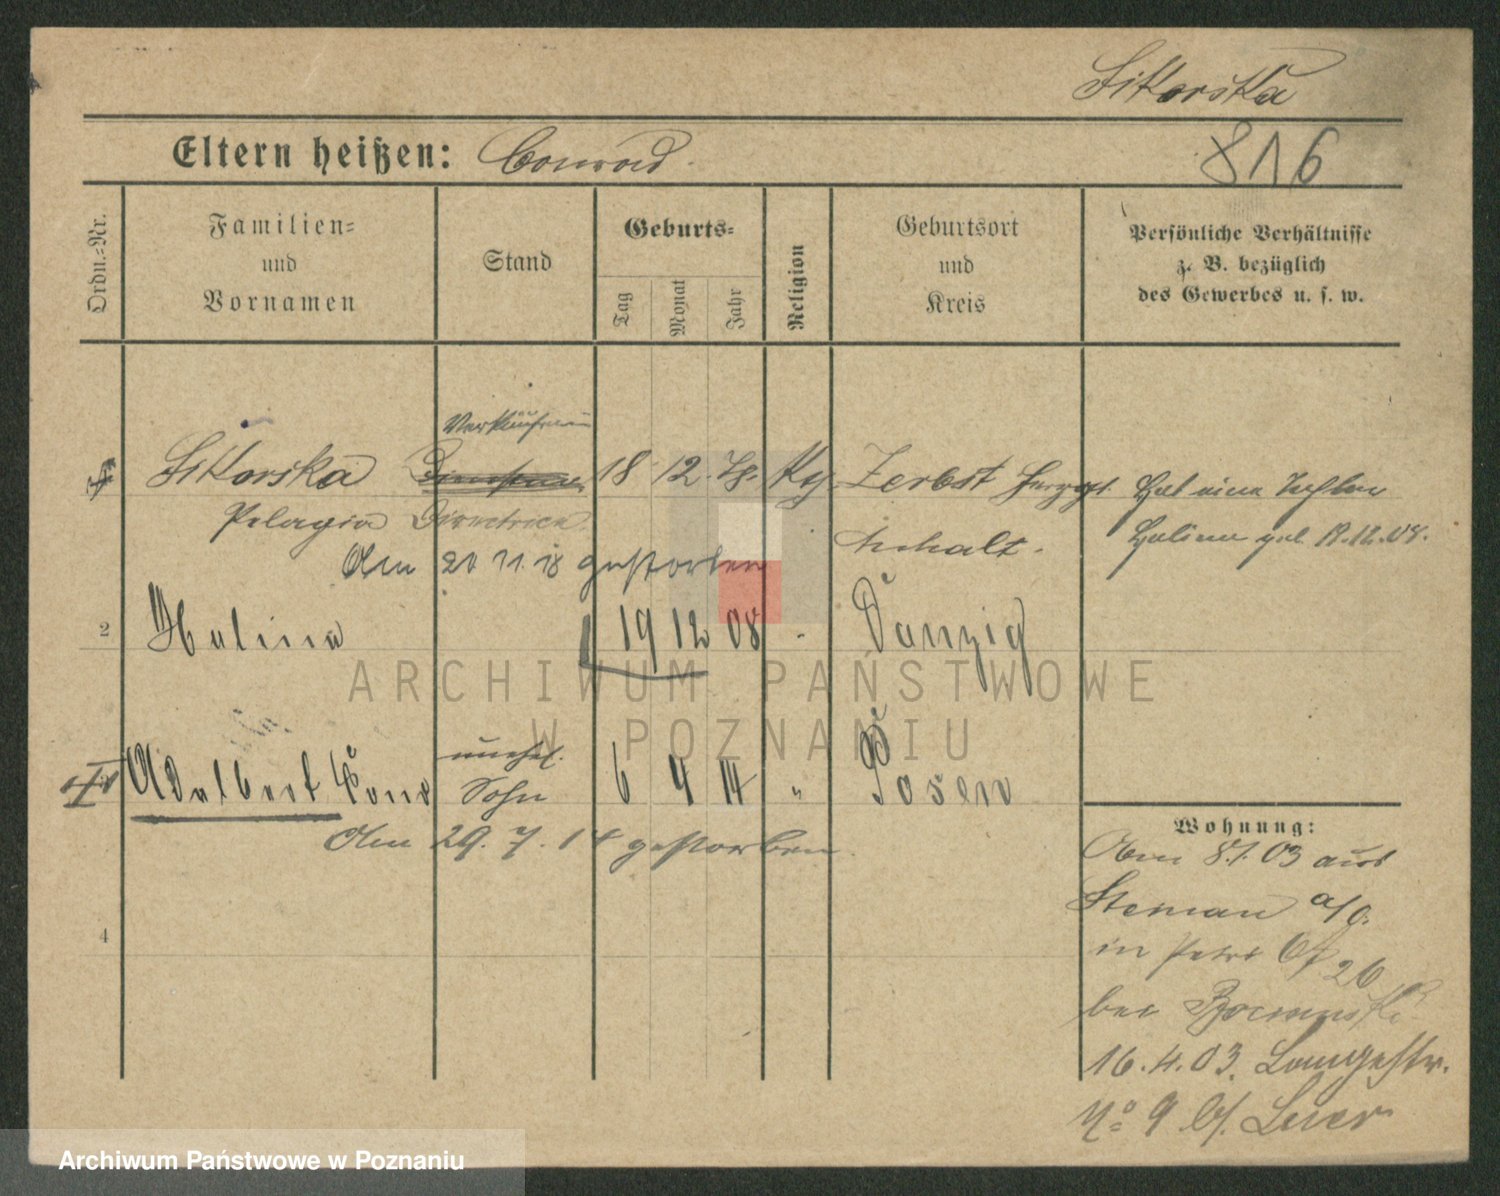 Sikorska
Eltern heißen: Conrad
816
Ordn.-Nr.
Familien=
und
Vornamen
Stand
Geburts=
Tag
Monat
Jahr
Religion
Geburtsort
und
Kreis
Persönliche Verhältnisse
z. B. bezüglich
des Gewerbes u. s. w.
Verkäuferin
Sikorska 18 12. 78. Zerbst
Pelagia Directrice
Anhalt.
Hat eine Tochter
Halina geb. 19.12.08.
Am 20 11 18 gestorben
2 Halina 19 12 08 - Danzig
unehel.
Adelbert Sohn 6 4 14 " Posen
Am 29. 7. 14 gestorben
4
Wohnung:
Am 8.1.03 aus
in 26
bei
16.4.03. Langestr.
No 9 b/.
ARCHIWUM PAŃSTWOWE
W POZNANIU
Archiwum Państwowe w Poznaniu